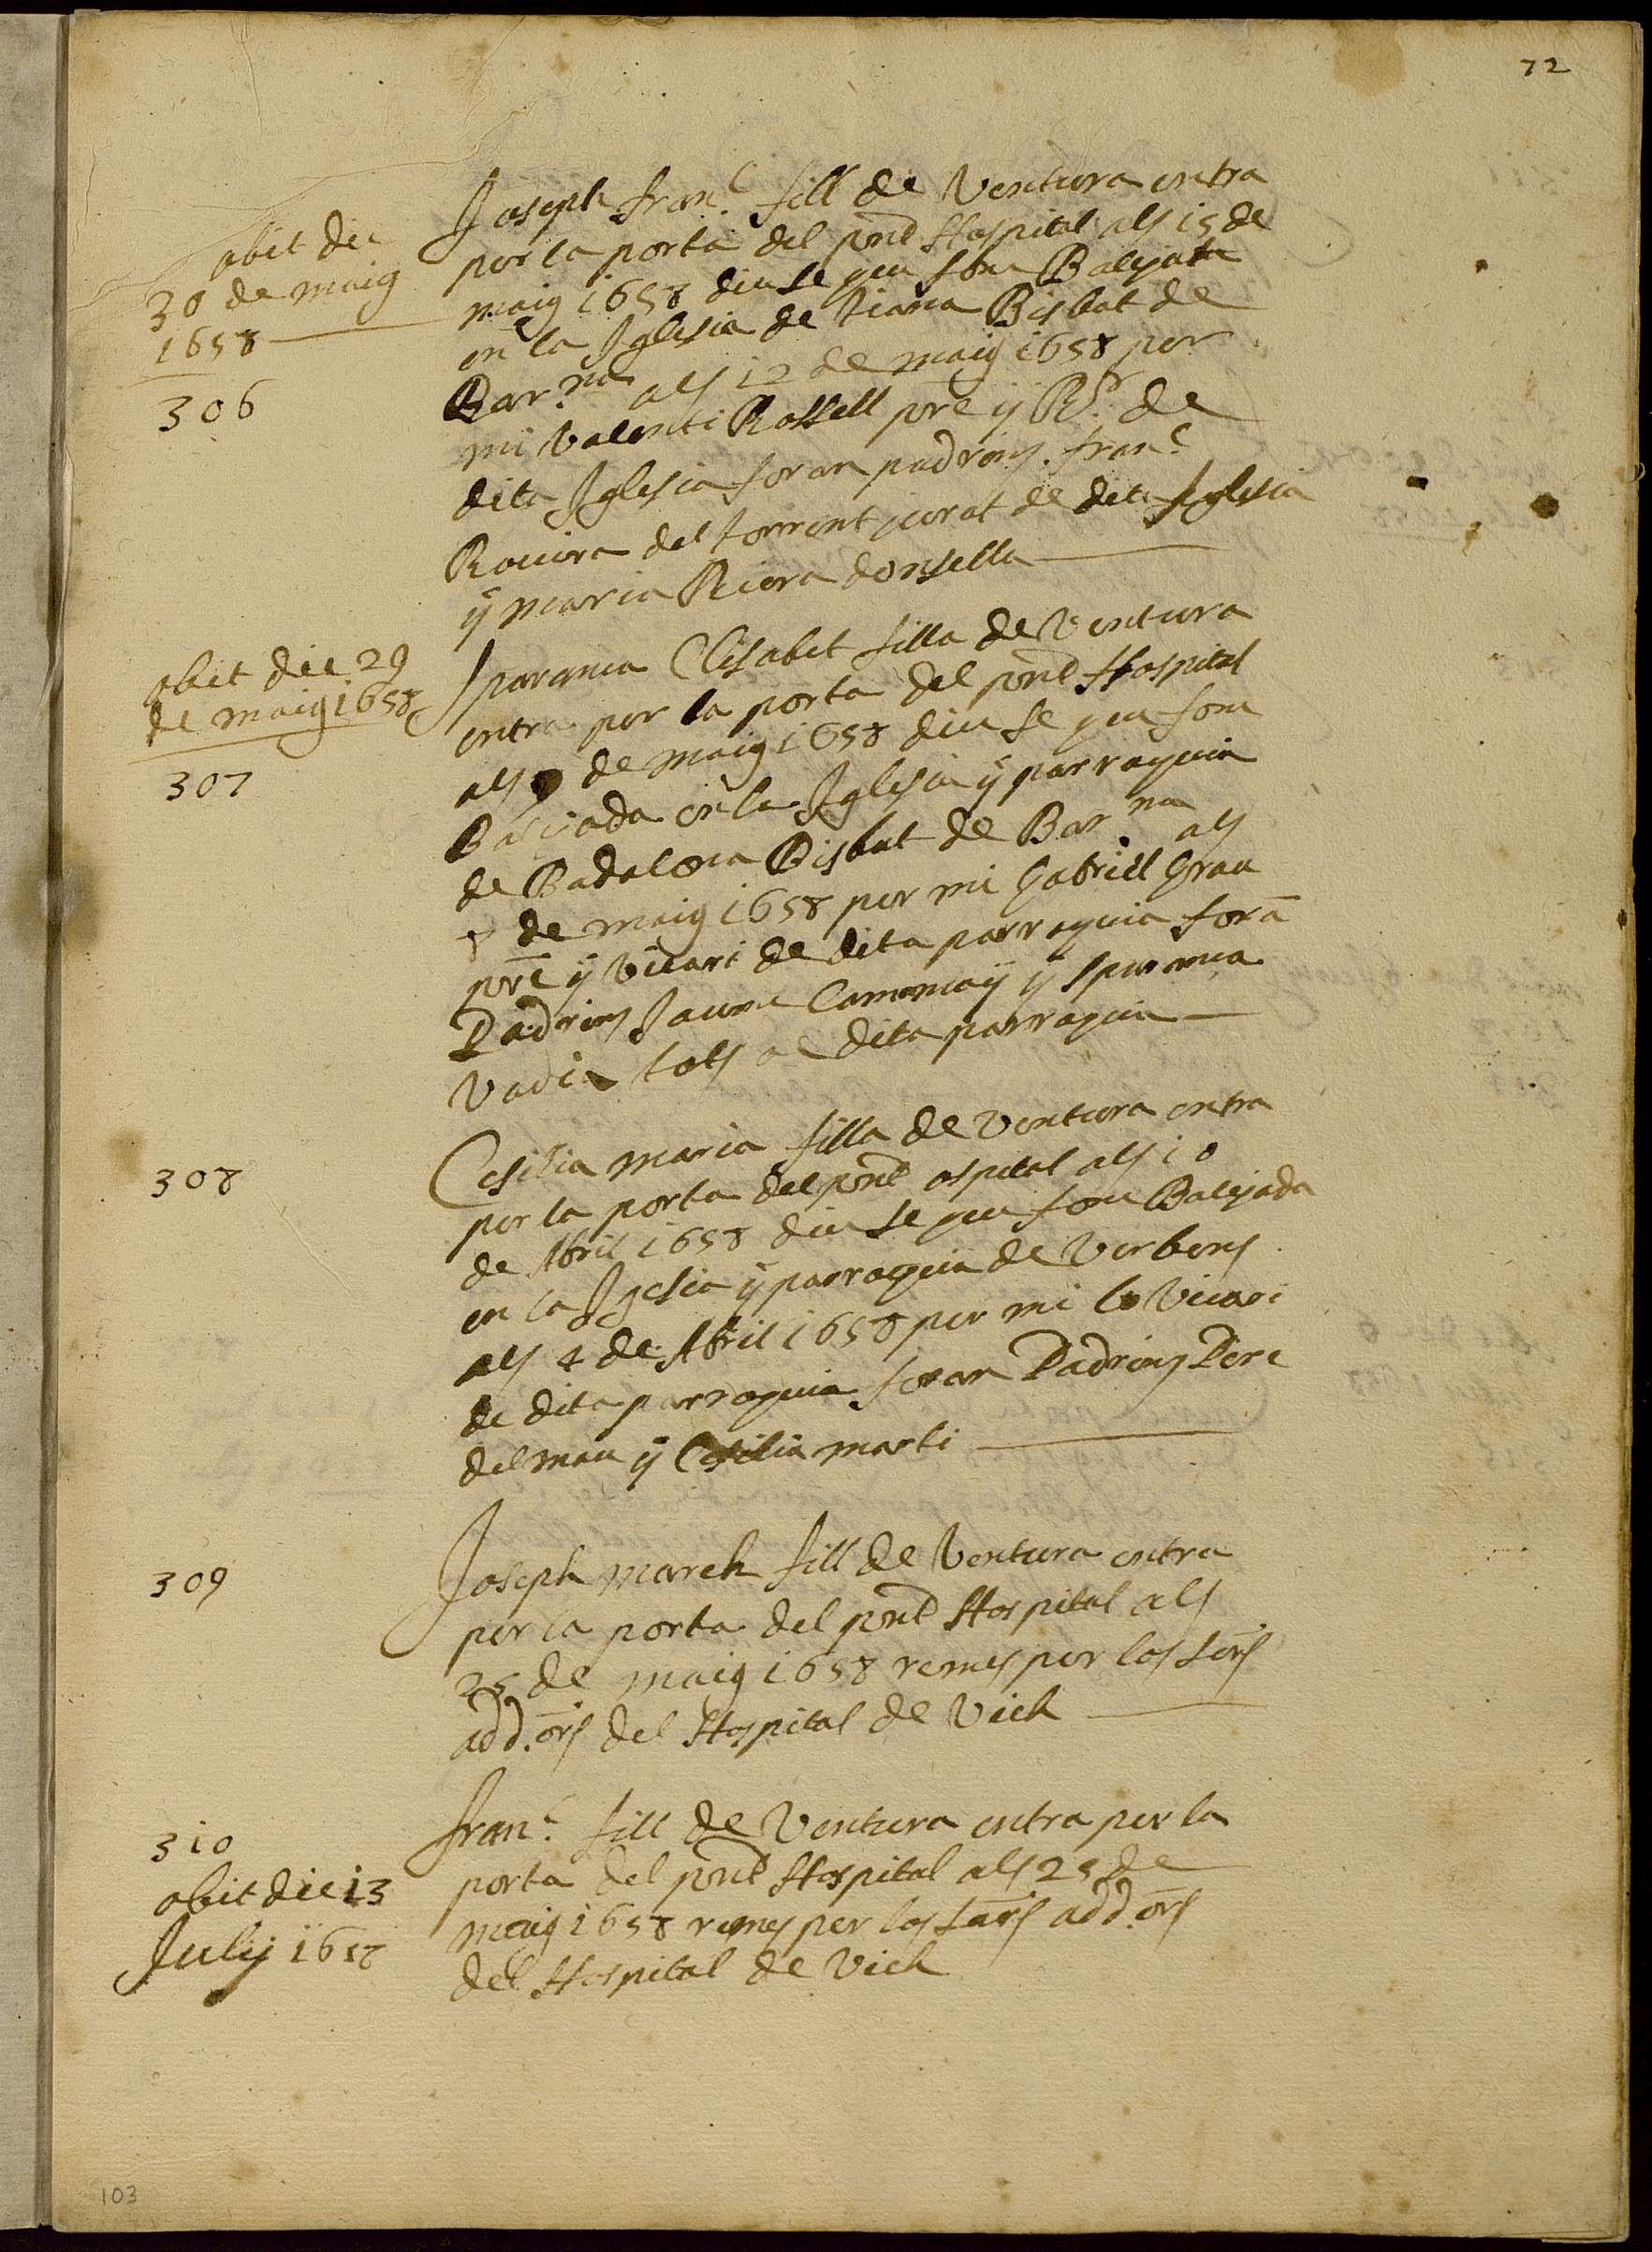 72
obit die
30 de maig
1658
306
Joseph fran.ᶜ fill de Ventura entra
per la porta del pnt Hospital als 15 de
maig 1658 diuse que fou Batejata
en la Iglesia de Tiana Bisbat de
Bar.ⁿᵃ als 12 de maig 1658 per
mi Valenti Rossell pre ÿ R.ᵒʳ de
dita Iglesia foran padrins. fran.ᶜ
Rouira del torrent jurat de dita Iglesia
ÿ maria Riera donsella
obit die 29
de maig 1658
307
Sparança Elisabet filla de Ventura
entra per la porta del pnt Hospital
als 9 de maig 1658 diu se que fou
Batejada en la Iglesia ÿ parraquia
de Badalona Bisbat de Bar.ⁿᵃ als
8 de maig 1658 per mi Gabriel Grau
pre ÿ Vicari de dita parraquia forã
Padrins Jaume ÿ Sparança
Vadia tots de dita parraquia
308
Cesilia maria filla de Ventura entra
per la porta del pnt ospital als 10
de Abril 1658 diu se que fou Batejada
en la Igesia ÿ parraquia de Verbens
als 4 de Abril 1658 per mi lo Vicari
de dita parraquia foran Padrins Pere
delmau ÿ Cesilia marti
309
Joseph march fill de Ventura entra
per la porta del pnt Hospital als
25 de maig 1658 remes per los sors
add.ors del Hospital de Vich
310
obit die 13
July 1658
fran.ᶜ fill de Ventura entra per la
porta del pnt Hospital als 25 de
maig 1658 remes per los sors add.ors
del Hospital de Vich
103